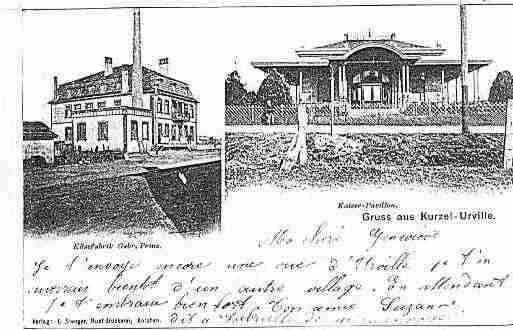 Kaiser-Pavillon.
Gruss aus Kurzel-Urville.
Käsefabrik Gebr. Prinz.
Ma chère Geneviève
Je t'envoye encore une vue d'Urville je t'en
enverrai bientôt d'un autre village. En attendant
je t'embrasse bien fort. Ton amie Suzanne.
Dis à Gabrielle de
Verlag: Buchdruckerei, Bolchen.